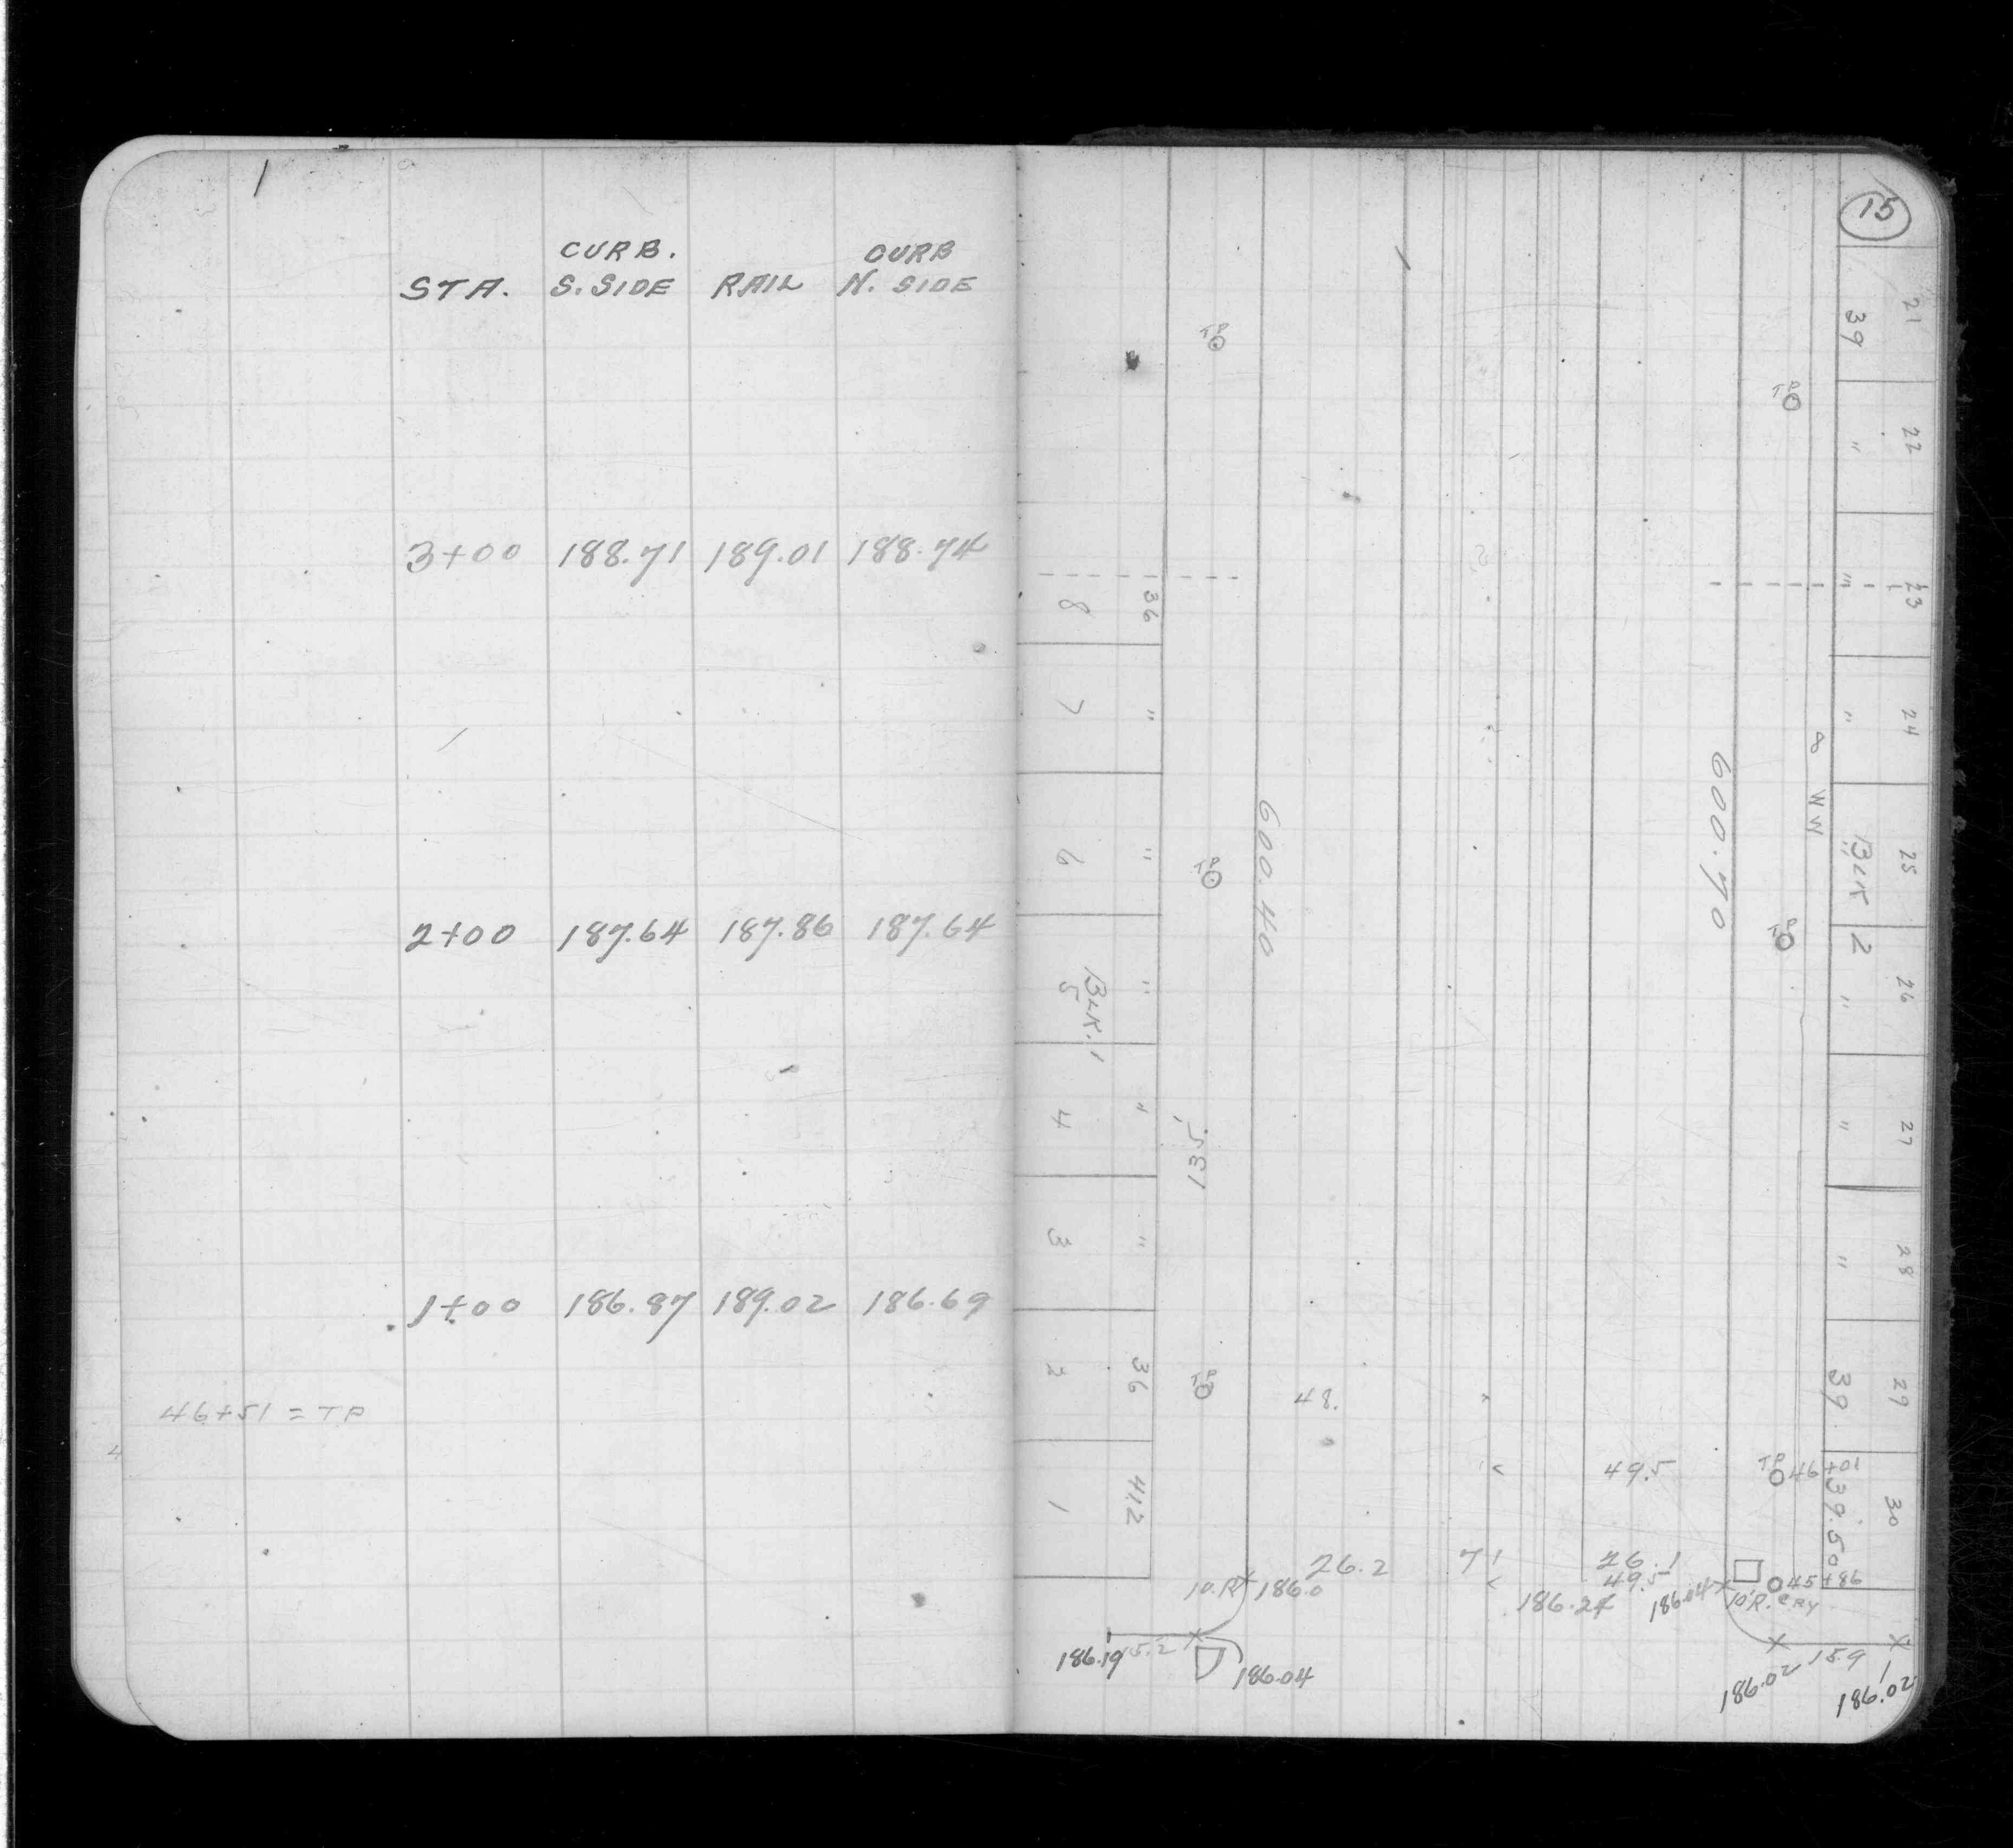 CURB. CURB
STA. S.SIDE RAIL N. SIDE
3+00 188.71 189.01 188.74
2+00 187.64 187.86 187.64
1+00 186.87 189.02 186.69
46+51 = TP
15
21
39
TP
TP
22
"
23
"
36
8
24
"
7
"
8 WW
600.70
600.40
25
BLK 2
6
"
TP
TP
26
"
5
"
BLK. 1
27
"
4
"
135,
28
"
3
"
29
39
2
36
TP
48.
49.5
TP 46+01
30
39.50
1
41.2
26.2 71 26.1
49.5
45+86
10.R 186.0
186.24 186.04 10'R. CRY
186.19 15.2
186.04
186.02 159
186.02